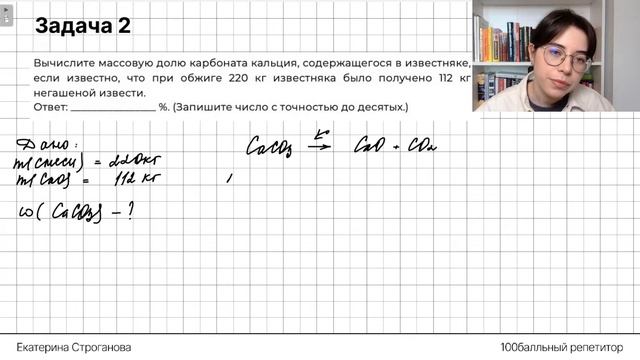 Задача 2
Вычислите массовую долю карбоната кальция, содержащегося в известняке,
если известно, что при обжиге 220 кг известняка было получено 112 кг
негашеной извести.
Ответ: _________________ %. (Запишите число с точностью до десятых.)
Дано:
m(смеси) = 220кг
m(CaO) = 112 кг
ω(CaCO3) - ?
CaCO3 → CaO + CO2
Екатерина Строганова
100балльный репетитор